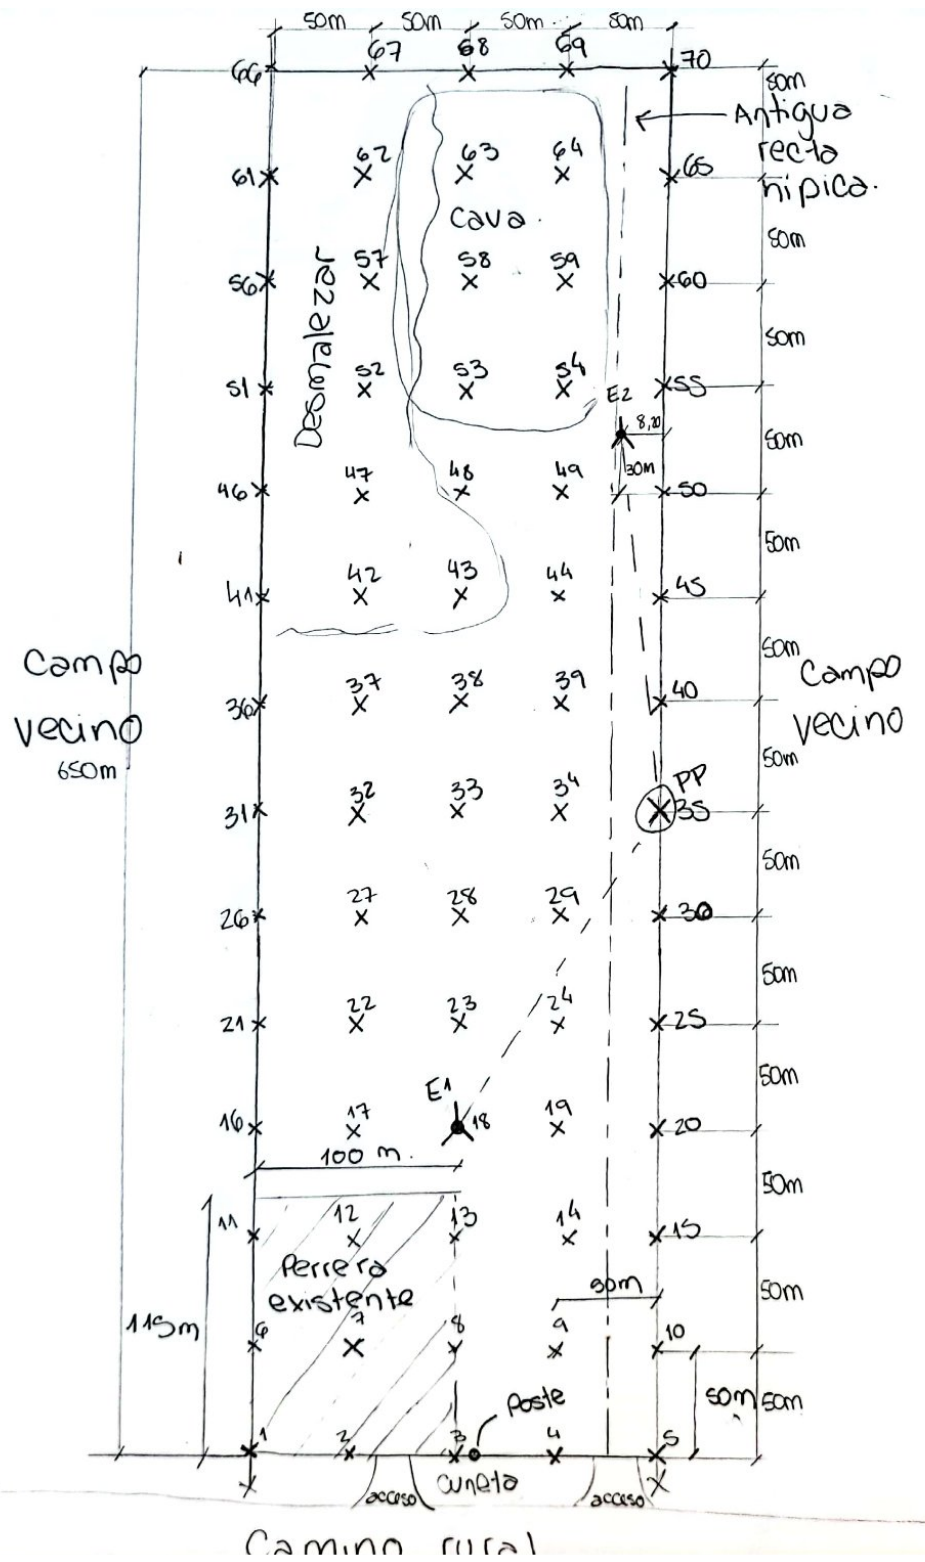 50m 50m 50m 50m
66 67 68 69 70
50m
Antigua
recta
hípica.
61 62 63 64 65
Cava.
50m
56 57 58 59 60
Desmalezar
50m
51 52 53 54 55
E2
8,20
50m
30m
46 47 48 49 50
50m
41 42 43 44 45
50m
Campo
vecino
Campo
vecino
36 37 38 39 40
650m
50m
PP
31 32 33 34 35
50m
26 27 28 29 30
50m
21 22 23 24 25
50m
E1
16 17 18 19 20
100 m.
50m
11 12 13 14 15
Perrera
existente
50m
50m
115m
6 7 8 9 10
50m
50m
Poste
1 2 3 4 5
acceso
Cuneta
acceso
Camino rural